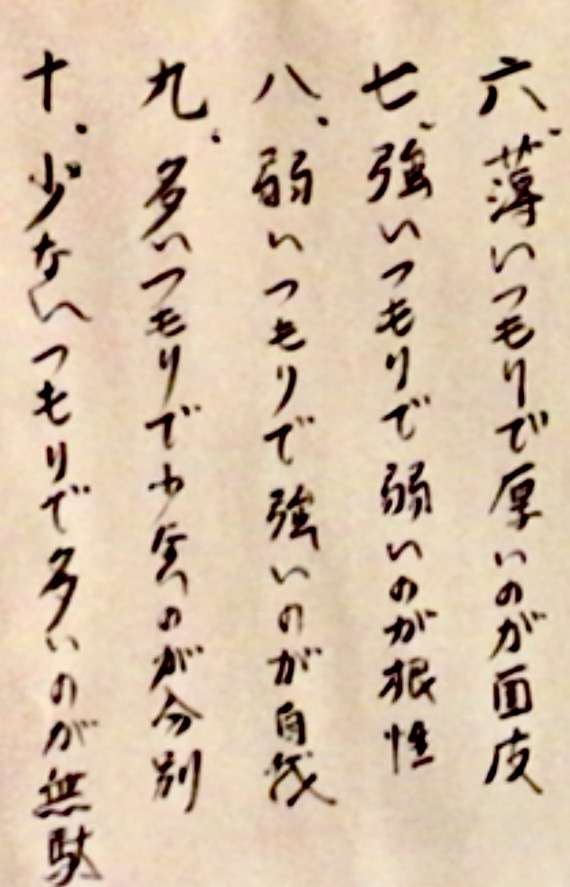 六、薄いつもりで厚いのが面皮
七、強いつもりで弱いのが根性
八、弱いつもりで強いのが自我
九、多いつもりで少ないのが分別
十、少ないつもりで多いのが無駄